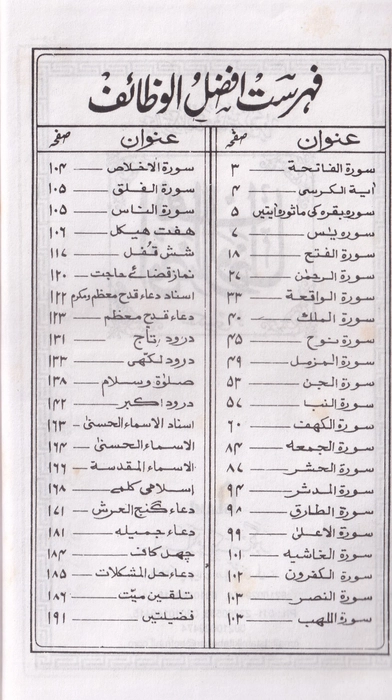 فہرست افضل الوظائف
عنوان صفحہ
سورة الفاتحة ۳
آية الكرسى ۴
سورہ بقرہ کی ماثورہ آیتیں ۵
سورہ یٰس ۷
سورة الفتح ۱۸
سورة الرحمٰن ۲۷
سورة الواقعة ۳۳
سورة الملك ۴۰
سورة نوح ۴۵
سورة المزمل ۴۹
سورة الجن ۵۳
سورة النبا ۵۷
سورة الكهف ۶۰
سورة الجمعه ۸۴
سورة الحشر ۸۷
سورة المدثر ۹۴
سورة الطارق ۹۸
سورة الاعلىٰ ۹۹
سورة الغاشيه ۱۰۱
سورة الكفرون ۱۰۲
سورة النصر ۱۰۳
سورة اللهب ۱۰۳
عنوان صفحہ
سورة الاخلاص ۱۰۴
سورة الفلق ۱۰۵
سورة الناس ۱۰۵
ہفت ہیکل ۱۰۶
شش قفل ۱۱۷
نماز قضائے حاجت ۱۲۰
اسناد دعاء قدح معظم ومکرم ۱۲۲
دعاء قدح معظم ۱۲۳
درود تاج ۱۳۱
درود لکھی ۱۳۳
صلوٰة وسلام ۱۳۸
درود اکبر ۱۴۲
اسناد الاسماء الحسنىٰ ۱۶۳
الاسماء الحسنىٰ ۱۶۴
الاسماء المقدسة ۱۶۶
اسلامی کلمے ۱۶۸
دعاء گنج العرش ۱۷۱
دعاء جمیلہ ۱۸۱
چہل کاف ۱۸۴
دعاء حل المشکلات ۱۸۵
تلقین میت ۱۸۶
فضیلتیں ۱۹۱